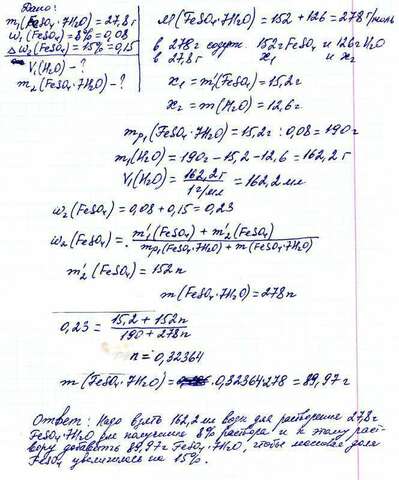 Дано:
m₁(FeSO₄·7H₂O)=27,8 г
ω₁(FeSO₄)=8%=0,08
Δω₂(FeSO₄)=15%=0,15
V₁(H₂O)-?
m₂(FeSO₄·7H₂O)-?
M(FeSO₄·7H₂O)=152+126=278 г/моль
в 278 г содерж. 152г FeSO₄ и 126г H₂O
в 27,8 г x₁ и x₂
x₁=m'₁(FeSO₄)=15,2г
x₂=m(H₂O)=12,6г
mр₁(FeSO₄·7H₂O)=15,2г:0,08=190г
m₁(H₂O)=190г-15,2-12,6=162,2г
V₁(H₂O)=162,2г/1г/мл=162,2мл
ω₂(FeSO₄)=0,08+0,15=0,23
ω₂(FeSO₄)=m'₁(FeSO₄)+m'₂(FeSO₄)/mр₁(FeSO₄·7H₂O)+m(FeSO₄·7H₂O)
m'₂(FeSO₄)=152n
m(FeSO₄·7H₂O)=278n
0,23=15,2+152n/190+278n
n=0,32364
m(FeSO₄·7H₂O)=0,32364·278=89,97г
Ответ: Надо взять 162,2мл воды для растворения 27,8г
FeSO₄·7H₂O для получения 8% раствора и к этому раст-
вору добавить 89,97г FeSO₄·7H₂O, чтобы массовая доля
FeSO₄ увеличилась на 15%.